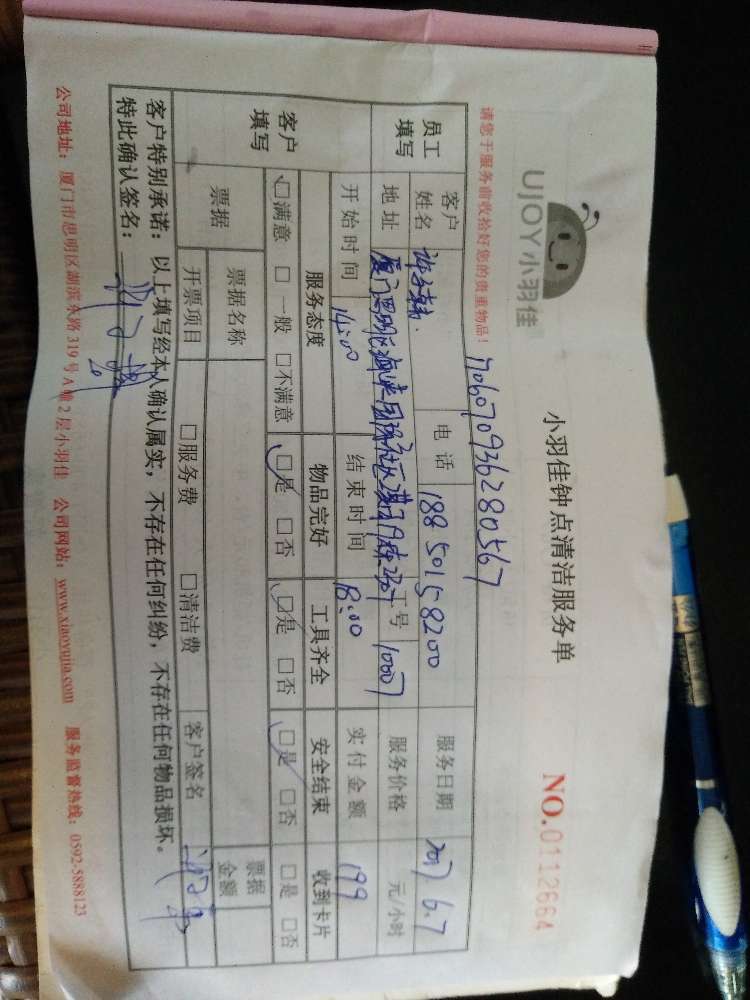 UJOY小羽佳
小羽佳钟点清洁服务单
NO.0112664
请您于服务前收拾好您的贵重物品！
706070936280567
员工填写 客户姓名 电话 188 50158200 服务日期 2017.6.7
地址 工号 10007 服务价格 元/小时
开始时间 14:00 结束时间 18:00 实付金额 199
客户填写 服务态度 物品完好 工具齐全 安全结束 收到卡片
□满意 □一般 □不满意 □是 □否 □是 □否 □是 □否 □是 □否
票据 票据名称 票据金额
开票项目 □服务费 □清洁费 客户签名
客户特别承诺：以上填写经本人确认属实，不存在任何纠纷，不存在任何物品损坏。
特此确认签名：
公司地址：厦门市思明区湖滨东路319号A幢2层小羽佳 公司网站：www.xiaoyujia.com 服务监督热线：0592-5888123